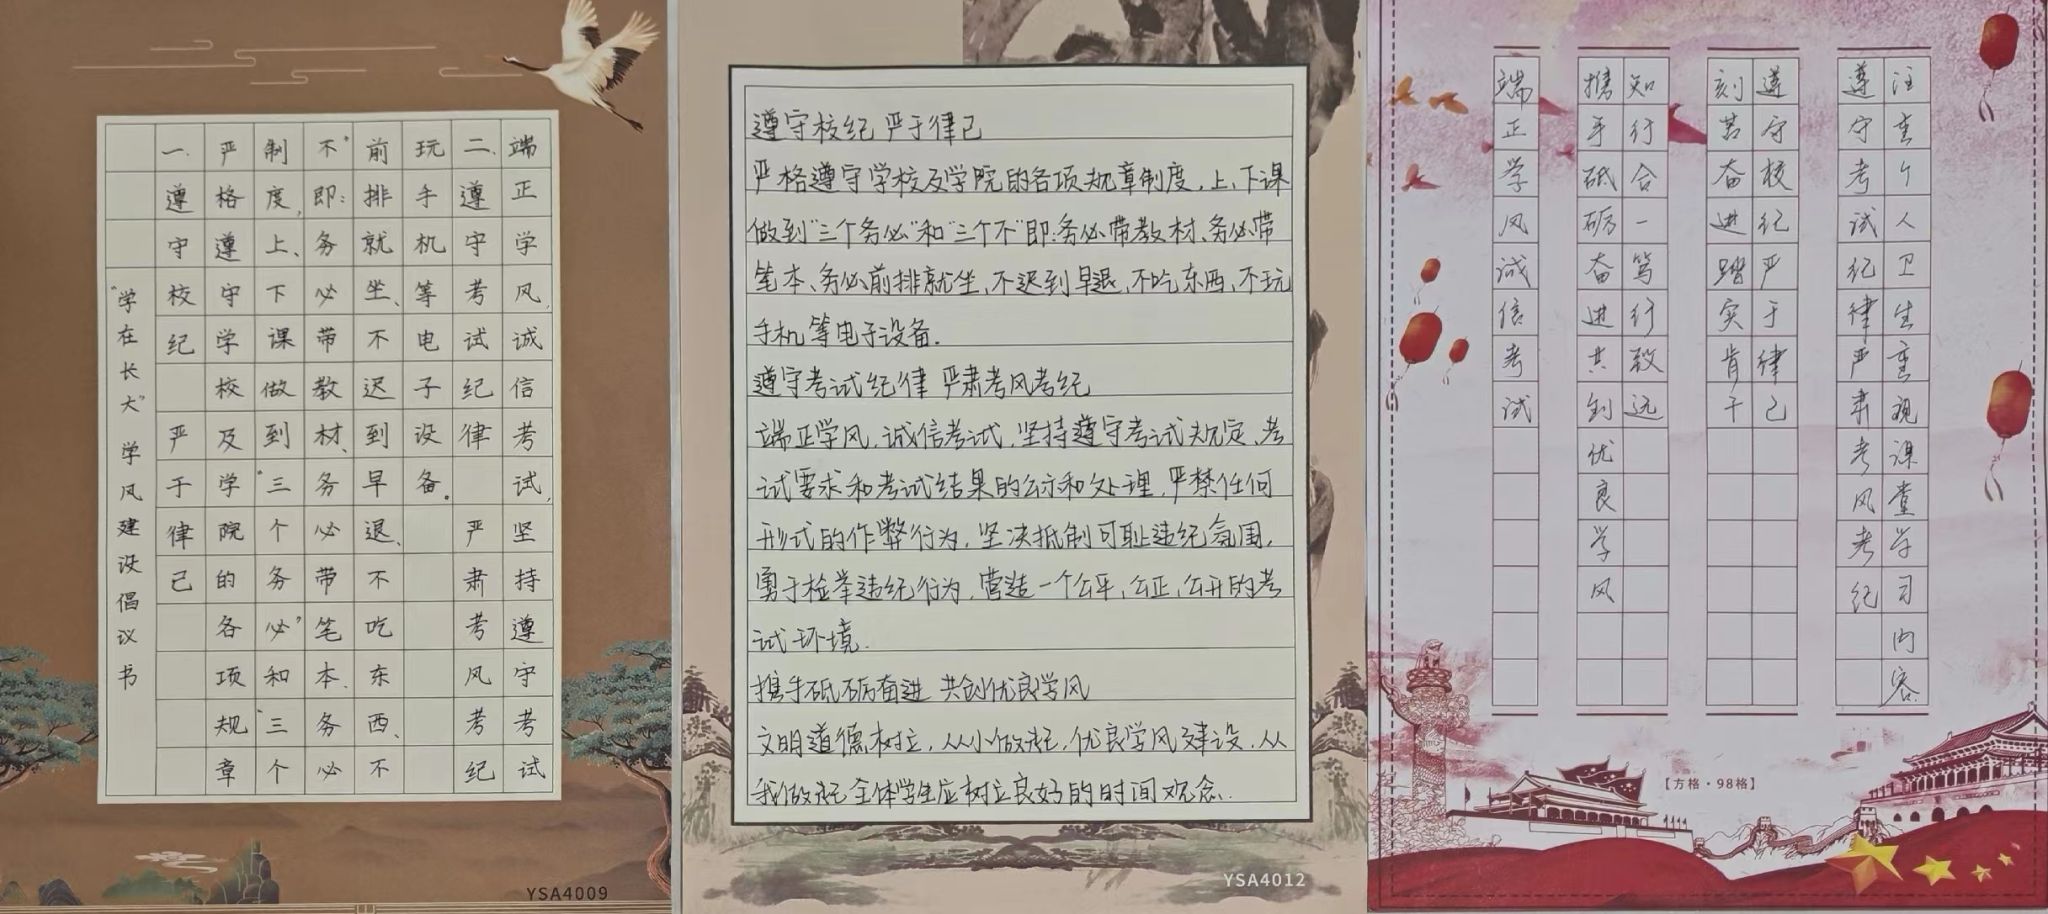 “学在长大”学风建设倡议书
一、遵守校纪 严于律己
严格遵守学校及学院的各项规章
制度,上、下课做到“三个务必”和“三个
不”即:务必带教材、务必带笔本、务必
前排就坐、不迟到早退、不吃东西、不
玩手机等电子设备。
二、遵守考试纪律 严肃考风考纪
端正学风,诚信考试,坚持遵守考试
YSA4009
遵守校纪 严于律己
严格遵守学校及学院的各项规章制度,上、下课
做到“三个务必”和“三个不”即:务必带教材、务必带
笔本、务必前排就坐,不迟到早退,不吃东西,不玩
手机等电子设备.
遵守考试纪律 严肃考风考纪
端正学风,诚信考试,坚持遵守考试规定、考
试要求和考试结果的公示和处理,严禁任何
形式的作弊行为,坚决抵制可耻违纪氛围,
勇于检举违纪行为,营造一个公平,公正,公开的考
试环境.
携手砥砺奋进 共创优良学风
文明道德树立,从小做起,优良学风建设,从
我做起全体学生应树立良好的时间观念.
YSA4012
注重个人卫生重视课堂学习内容.
遵守考试纪律严肃考风考纪
遵守校纪严于律己
刻苦奋进踏实肯干
知行合一笃行致远
携手砥砺奋进共创优良学风
端正学风诚信考试
【方格·98格】